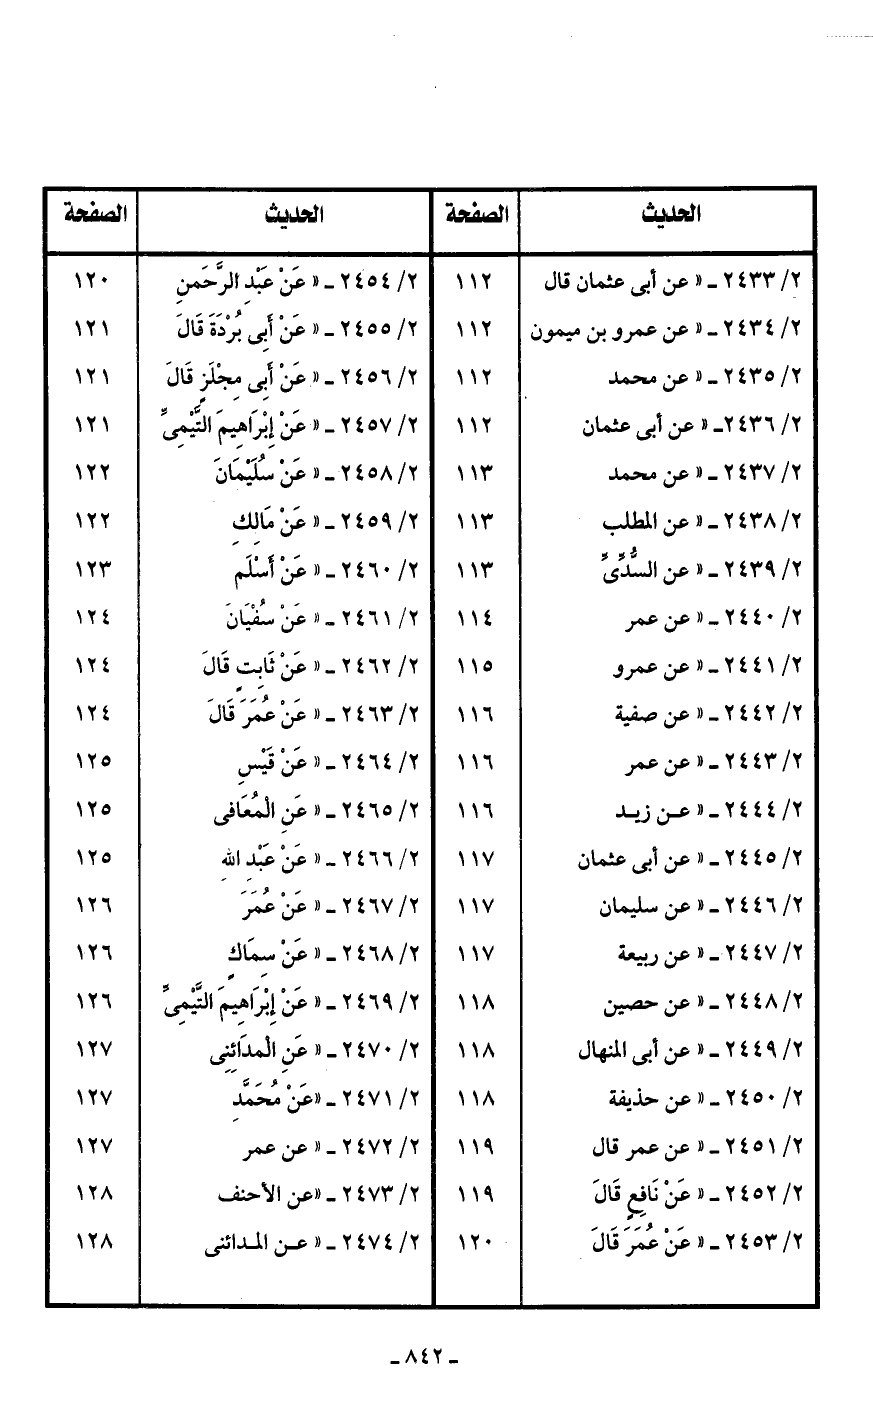 الحديث الصفحة الحديث الصفحة
٢/ ٢٤٣٣ ـ « عن أبى عثمان قال ١١٢ ٢/ ٢٤٥٤ ـ « عَنْ عَبْدِ الرَّحَمنِ ١٢٠
٢/ ٢٤٣٤ ـ « عن عمرو بن ميمون ١١٢ ٢/ ٢٤٥٥ ـ « عَنْ أَبِى بُرْدَةَ قَالَ ١٢١
٢/ ٢٤٣٥ ـ « عن محمد ١١٢ ٢/ ٢٤٥٦ ـ « عَنْ أَبِى مِجْلَزٍ قَالَ ١٢١
٢/ ٢٤٣٦ـ « عن أبى عثمان ١١٢ ٢/ ٢٤٥٧ ـ « عَنْ إِبْرَاهِيمَ التَّيْمِىِّ ١٢١
٢/ ٢٤٣٧ ـ « عن محمد ١١٣ ٢/ ٢٤٥٨ ـ « عَنْ سُلَيْمَانَ ١٢٢
٢/ ٢٤٣٨ ـ « عن المطلب ١١٣ ٢/ ٢٤٥٩ ـ « عَنْ مَالِكِ ١٢٢
٢/ ٢٤٣٩ ـ « عن السُّدِّىِّ ١١٣ ٢/ ٢٤٦٠ ـ « عَنْ أَسْلَم ١٢٣
٢/ ٢٤٤٠ ـ « عن عمر ١١٤ ٢/ ٢٤٦١ ـ « عَنْ سُفْيَانَ ١٢٤
٢/ ٢٤٤١ ـ « عن عمرو ١١٥ ٢/ ٢٤٦٢ ـ « عَنْ ثَابِتٍ قَالَ ١٢٤
٢/ ٢٤٤٢ ـ « عن صفية ١١٦ ٢/ ٢٤٦٣ ـ « عَنْ عُمَرَ قَالَ ١٢٤
٢/ ٢٤٤٣ ـ « عن عمر ١١٦ ٢/ ٢٤٦٤ ـ « عَنْ قَيْسِ ١٢٥
٢/ ٢٤٤٤ ـ « عـن زيـد ١١٦ ٢/ ٢٤٦٥ ـ « عَنِ الْمُعَافى ١٢٥
٢/ ٢٤٤٥ ـ « عن أبى عثمان ١١٧ ٢/ ٢٤٦٦ ـ « عَنْ عَبْدِ الله ١٢٥
٢/ ٢٤٤٦ ـ « عن سليمان ١١٧ ٢/ ٢٤٦٧ ـ « عَنْ عُمَرَ ١٢٦
٢/ ٢٤٤٧ ـ « عن ربيعة ١١٧ ٢/ ٢٤٦٨ ـ « عَنْ سِمَاكٍ ١٢٦
٢/ ٢٤٤٨ ـ « عن حصين ١١٨ ٢/ ٢٤٦٩ ـ « عَنْ إِبْرَاهِيمَ التَّيْمِىِّ ١٢٦
٢/ ٢٤٤٩ ـ « عن أبى المنهال ١١٨ ٢/ ٢٤٧٠ ـ « عَنِ الْمدَائِنِى ١٢٧
٢/ ٢٤٥٠ ـ « عن حذيفة ١١٨ ٢/ ٢٤٧١ ـ «عَنْ مُحَمَّدِ ١٢٧
٢/ ٢٤٥١ ـ « عن عمر قال ١١٩ ٢/ ٢٤٧٢ ـ « عن عمر ١٢٧
٢/ ٢٤٥٢ ـ « عَنْ نَافِعٍ قَالَ ١١٩ ٢/ ٢٤٧٣ ـ «عن الأحنف ١٢٨
٢/ ٢٤٥٣ ـ « عَنْ عُمَرَ قَالَ ١٢٠ ٢/ ٢٤٧٤ ـ « عـن المـدائنى ١٢٨
ـ ٨٤٢ ـ